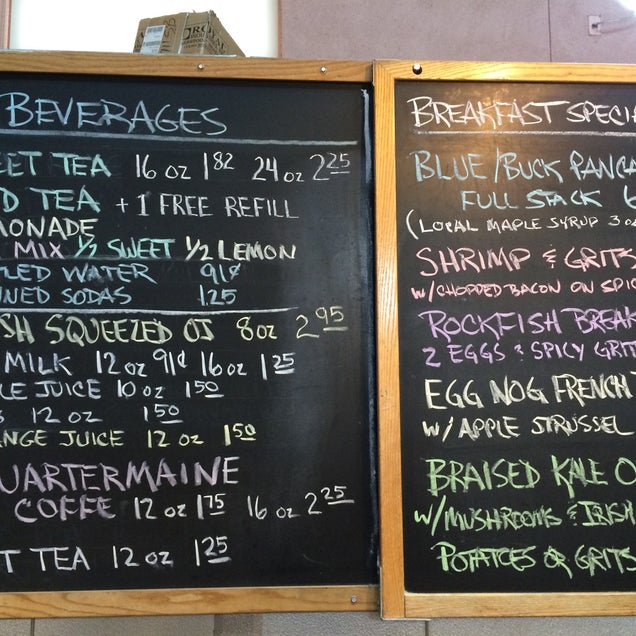 BEVERAGES
EET TEA 16 oz 1 82 24 oz 2 25
D TEA + 1 FREE REFILL
MONADE
MIX 1/2 SWEET 1/2 LEMON
LED WATER 91¢
NED SODAS 1.25
SH SQUEEZED OJ 8 oz 2 95
MILK 12 oz 91¢ 16 oz 1 25
LE JUICE 10 oz 1 50
12 oz 1 50
NGE JUICE 12 oz 1 50
UARTERMAINE
COFFE 12 oz 1 75 16 oz 2 25
T TEA 12 oz 1 25
BREAKFAST SPECI
BLUE/BUCK PANCA
FULL STACK 6
(LOCAL MAPLE SYRUP 3 oz
SHRIMP & GRITS
W/CHOPPED BACON ON SPIC
ROCKFISH BREAK
2 EGGS & SPICY GRIT
EGG NOG FRENCH T
W/ APPLE STRUSSEL
BRAISED KALE O
W/MUSHROOMS & IRISH
POTATOES OR GRITS